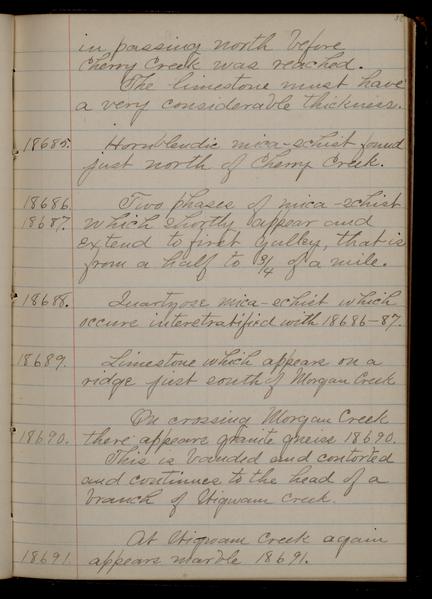 in passing north before
Cherry Creek was reached.
The limestone must have
a very considerable thickness.
18685. Hornblendic mica-schist found
just north of Cherry Creek.
18686. Two phases of mica-schist
18687. which shortly appear and
extend to first gulley, that is
from a half to 3/4 of a mile.
18688. Quartzose mica-schist which
occurs interstratified with 18686-87.
18689. Limestone which appears on a
ridge just south of Morgan Creek
On crossing Morgan Creek
18690. there appears granite gneiss 18690.
This is banded and contorted
and continues to the head of a
branch of Wigwam Creek.
At Wigwam Creek again
18691. appears marble 18691.